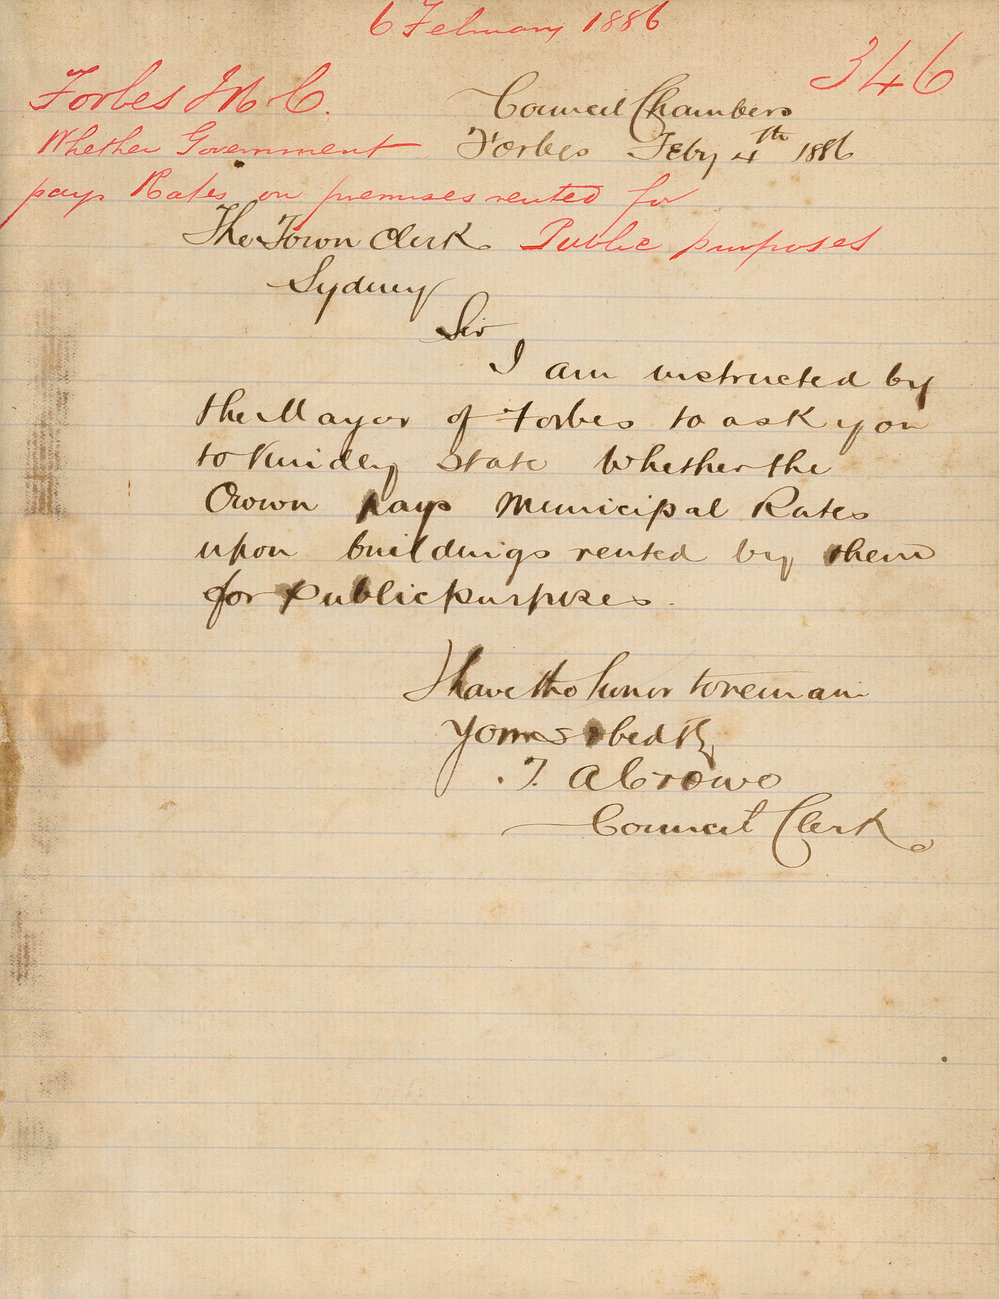 6 February 1886
346
Forbes M. C.
Whether Government
pays Rates on premises rented for
Public purposes
Council Chambers
Forbes Feby 4th 1886
The Town Clerk
Sydney
Sir
I am instructed by
the Mayor of Forbes to ask you
to kindly state whether the
Crown pays Municipal Rates
upon buildings rented by them
for public purposes.
I have the honor to remain
Yours obedtly
T. A
Council Clerk